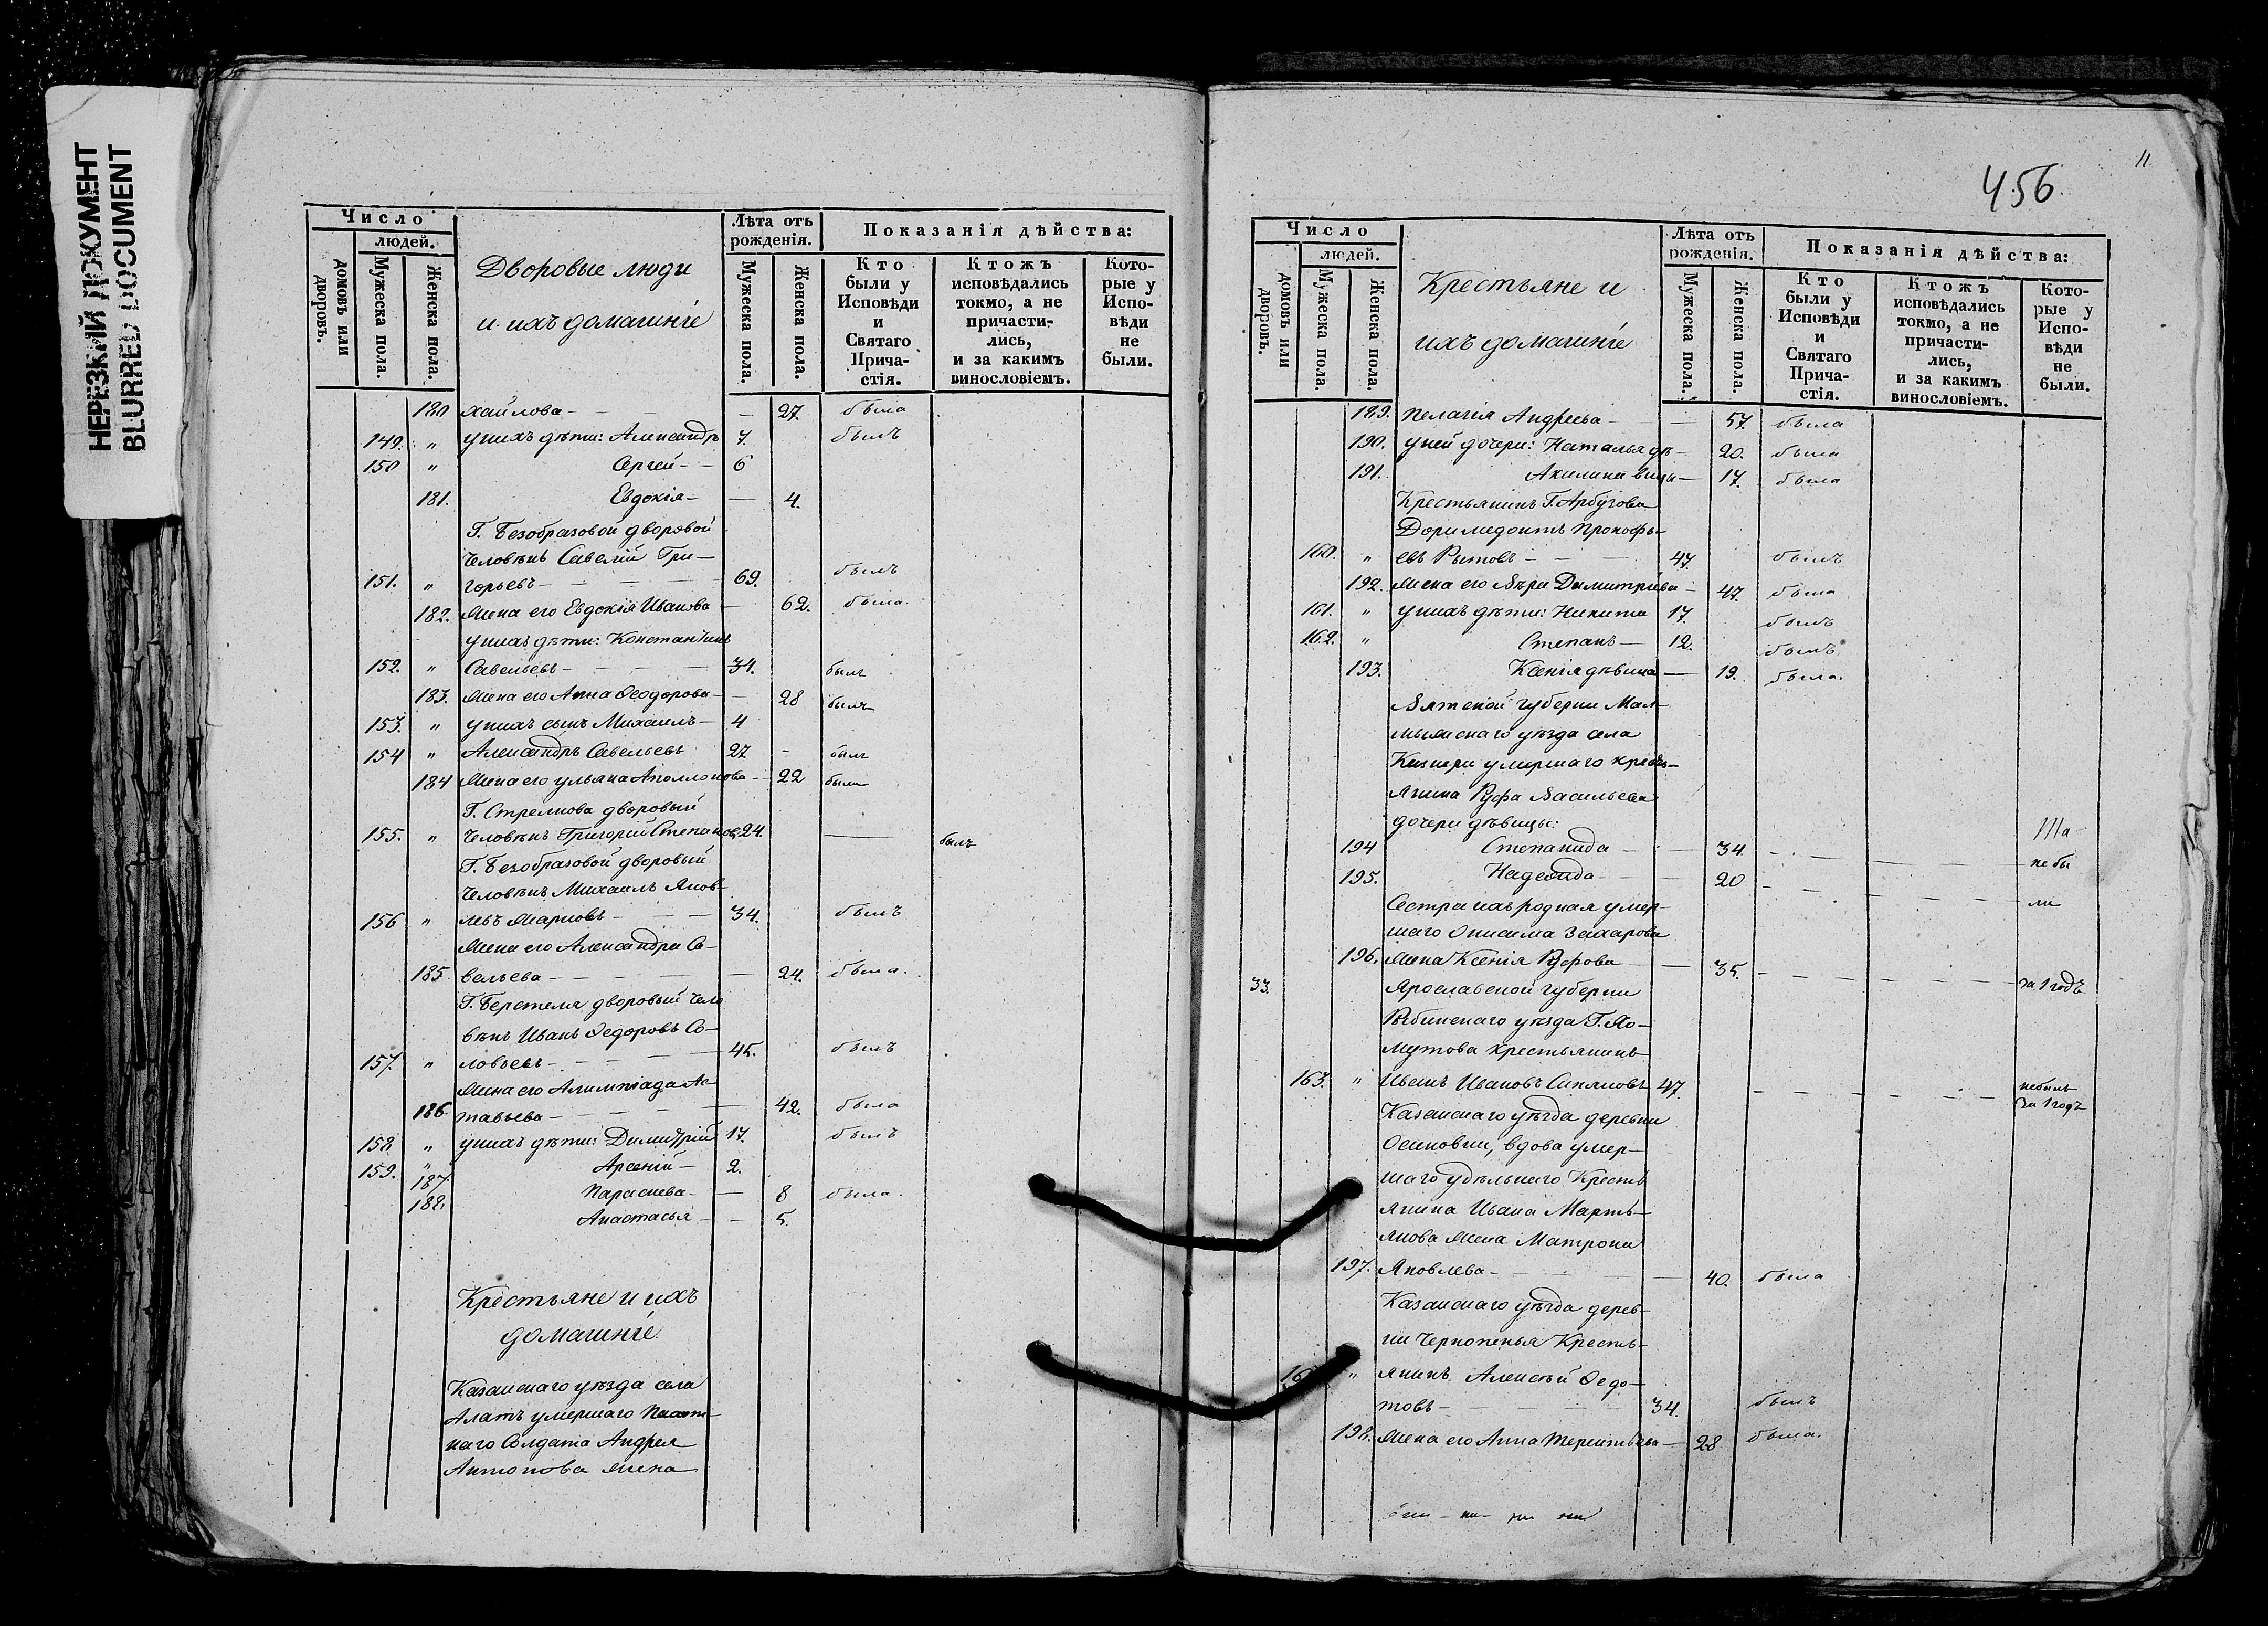 НЕРЕЗКИЙ ДОКУМЕНТ
BLURRED DOCUMENT
Число
людей.
домовъ или дворовъ.
Мужеска пола.
Женска пола.
Дворовые люди
и ихъ домашніе
Лѣта отъ рожденія.
Мужеска пола.
Женска пола.
Показанія дѣйства:
Кто были у Исповѣди и Святаго Прича-стія.
Ктожъ исповѣдались токмо, а не причасти-лись, и за какимъ винословіемъ.
Кото-рые у Испо-вѣди не были.
180 хайлова — 27. была
149. " у нихъ дѣти: Александръ 7. былъ
150 " Сергей — 6
181. Евдокія — 4.
Г. Безобразовой дворовой
человѣкъ Савелій Гри-
151. " горьевъ — 69. былъ
182. жена его Евдокія Иванова — 62. была.
у нихъ дѣти: Константинъ
152. " Савельевъ — 34. былъ
183. жена его Анна Ѳеодорова — 28 былъ
153. " у нихъ сынъ Михаилъ — 4
154 " Александръ Савельевъ 27 — былъ
184 жена его Ульяна Аполлонова — 22 была
Г. Стрелкова дворовый
155. " человѣкъ Григорій Степановъ 24. — былъ
Г. Безобразовой дворовый
человѣкъ Михаилъ Яков-
156 " левъ Марковъ — 34. былъ
жена его Александра Са-
185. вельева — 24. была.
Г. Берстеля дворовый чело
вѣкъ Иванъ Ѳедоровъ Со-
157. " ловьевъ — 45. былъ
жена его Алимпіада Ас-
186. тавьева — 42. была
158. " у нихъ дѣти: Димитрій 17. былъ
159. " Арсеній — 2.
187. Параскева — 8 была.
188. Анастасья — 5.
Крестьяне и ихъ
домашніе
Казанскаго уѣзда села
Алатъ умершаго
наго Солдата Андрея
Антонова жена
456
11
Число
людей.
домовъ или дворовъ.
Мужеска пола.
Женска пола.
Крестьяне и
ихъ домашніе
Лѣта отъ рожденія.
Мужеска пола.
Женска пола.
Показанія дѣйства:
Кто были у Исповѣди и Святаго Прича-стія.
Ктожъ исповѣдались токмо, а не причасти-лись, и за какимъ винословіемъ.
Кото-рые у Испо-вѣди не были.
189. Пелагія Андреева — 57. была
190. у ней дочери: Наталья дѣ- 20. была
191. Акилина вицы — 17. была
Крестьянинъ Г. Арбузова
Доримедонтъ Прокофь-
160. " евъ Рытовъ — 47. былъ
192. жена его Вѣра Димитріева — 47. была
161. " у нихъ дѣти: Никита 17. былъ
162. " Степанъ — 12. былъ
193. Ксенія дѣвица — 19. была.
Вятской губерніи Мал-
мыжскаго уѣзда села
умершаго кресть-
янина Руфа Васильева
дочери дѣвицы:
194 Степанида — 34. —
195. Надежда — 20 — не бы
Сестра ихъ родная умер- ли
шаго Онисима Захарова
196. жена Ксенія Руфова — 35. — за 1 годъ
33. Ярославской губерніи
Рыбинскаго уѣзда Г. Хо-
мутова крестьянинъ
163. " Иванъ Ивановъ 47. — небылъ
за 1 годъ
Казанскаго уѣзда деревни
Осиновки, вдова умер-
шаго удѣльнаго Кресть
янина Ивана Марть-
янова жена Матрона
197. Яковлева — 40. была
Казанскаго уѣзда дерев-
ни Чернопенья Кресть-
16 " янинъ Алексѣй Ѳедо-
товъ — 34. былъ
198. жена его Анна Терентьева — 28 была.